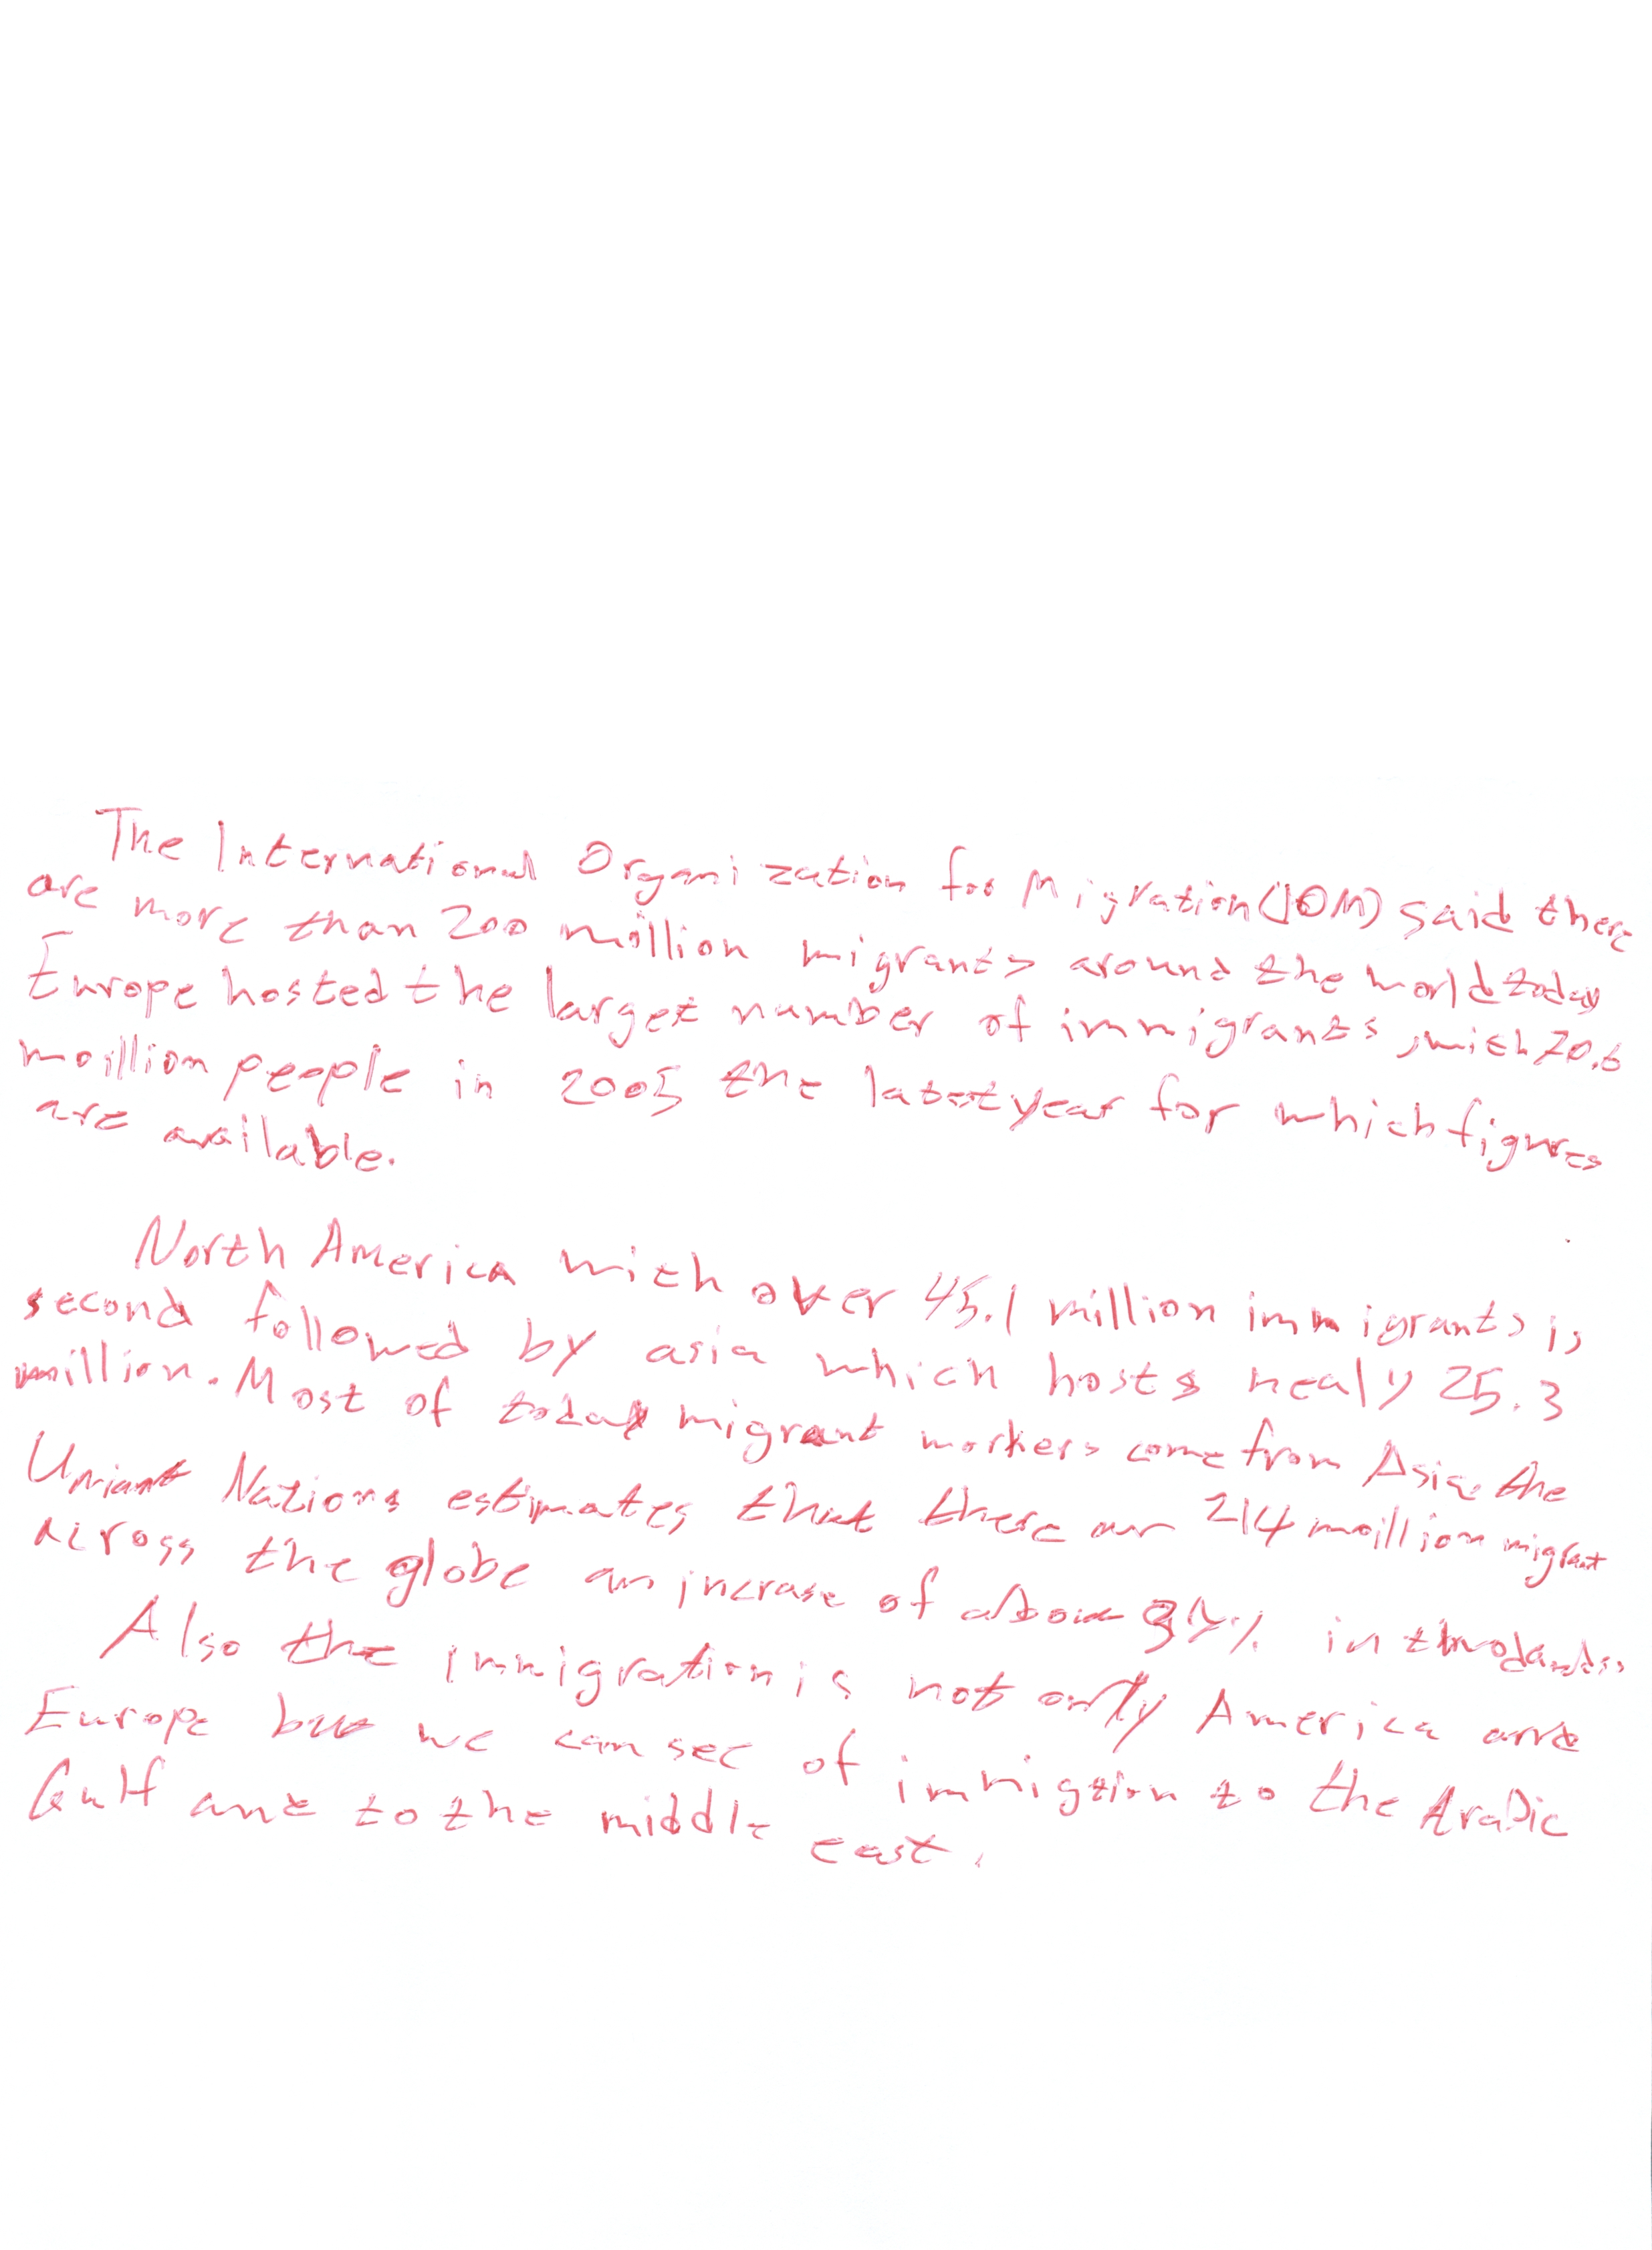 The International Organization for Migration (IOM) said there
are more than 200 million migrants around the world today
Europe hosted the larget number of immigrants, with 70.6
moillion people in 2005 the latest year for which figures
are available.
North America with over 45.1 million immigrants is
second followed by asia which hosts nealy 25.3
million. Most of today migrant workers come from Asia the
Nations estimates that there are 214 moillion migrant
across the globe an incrase of in two
Also the immigration is not only America and
Europe but we can see of immigtion to the Arabic
Gulf and to the middle east.